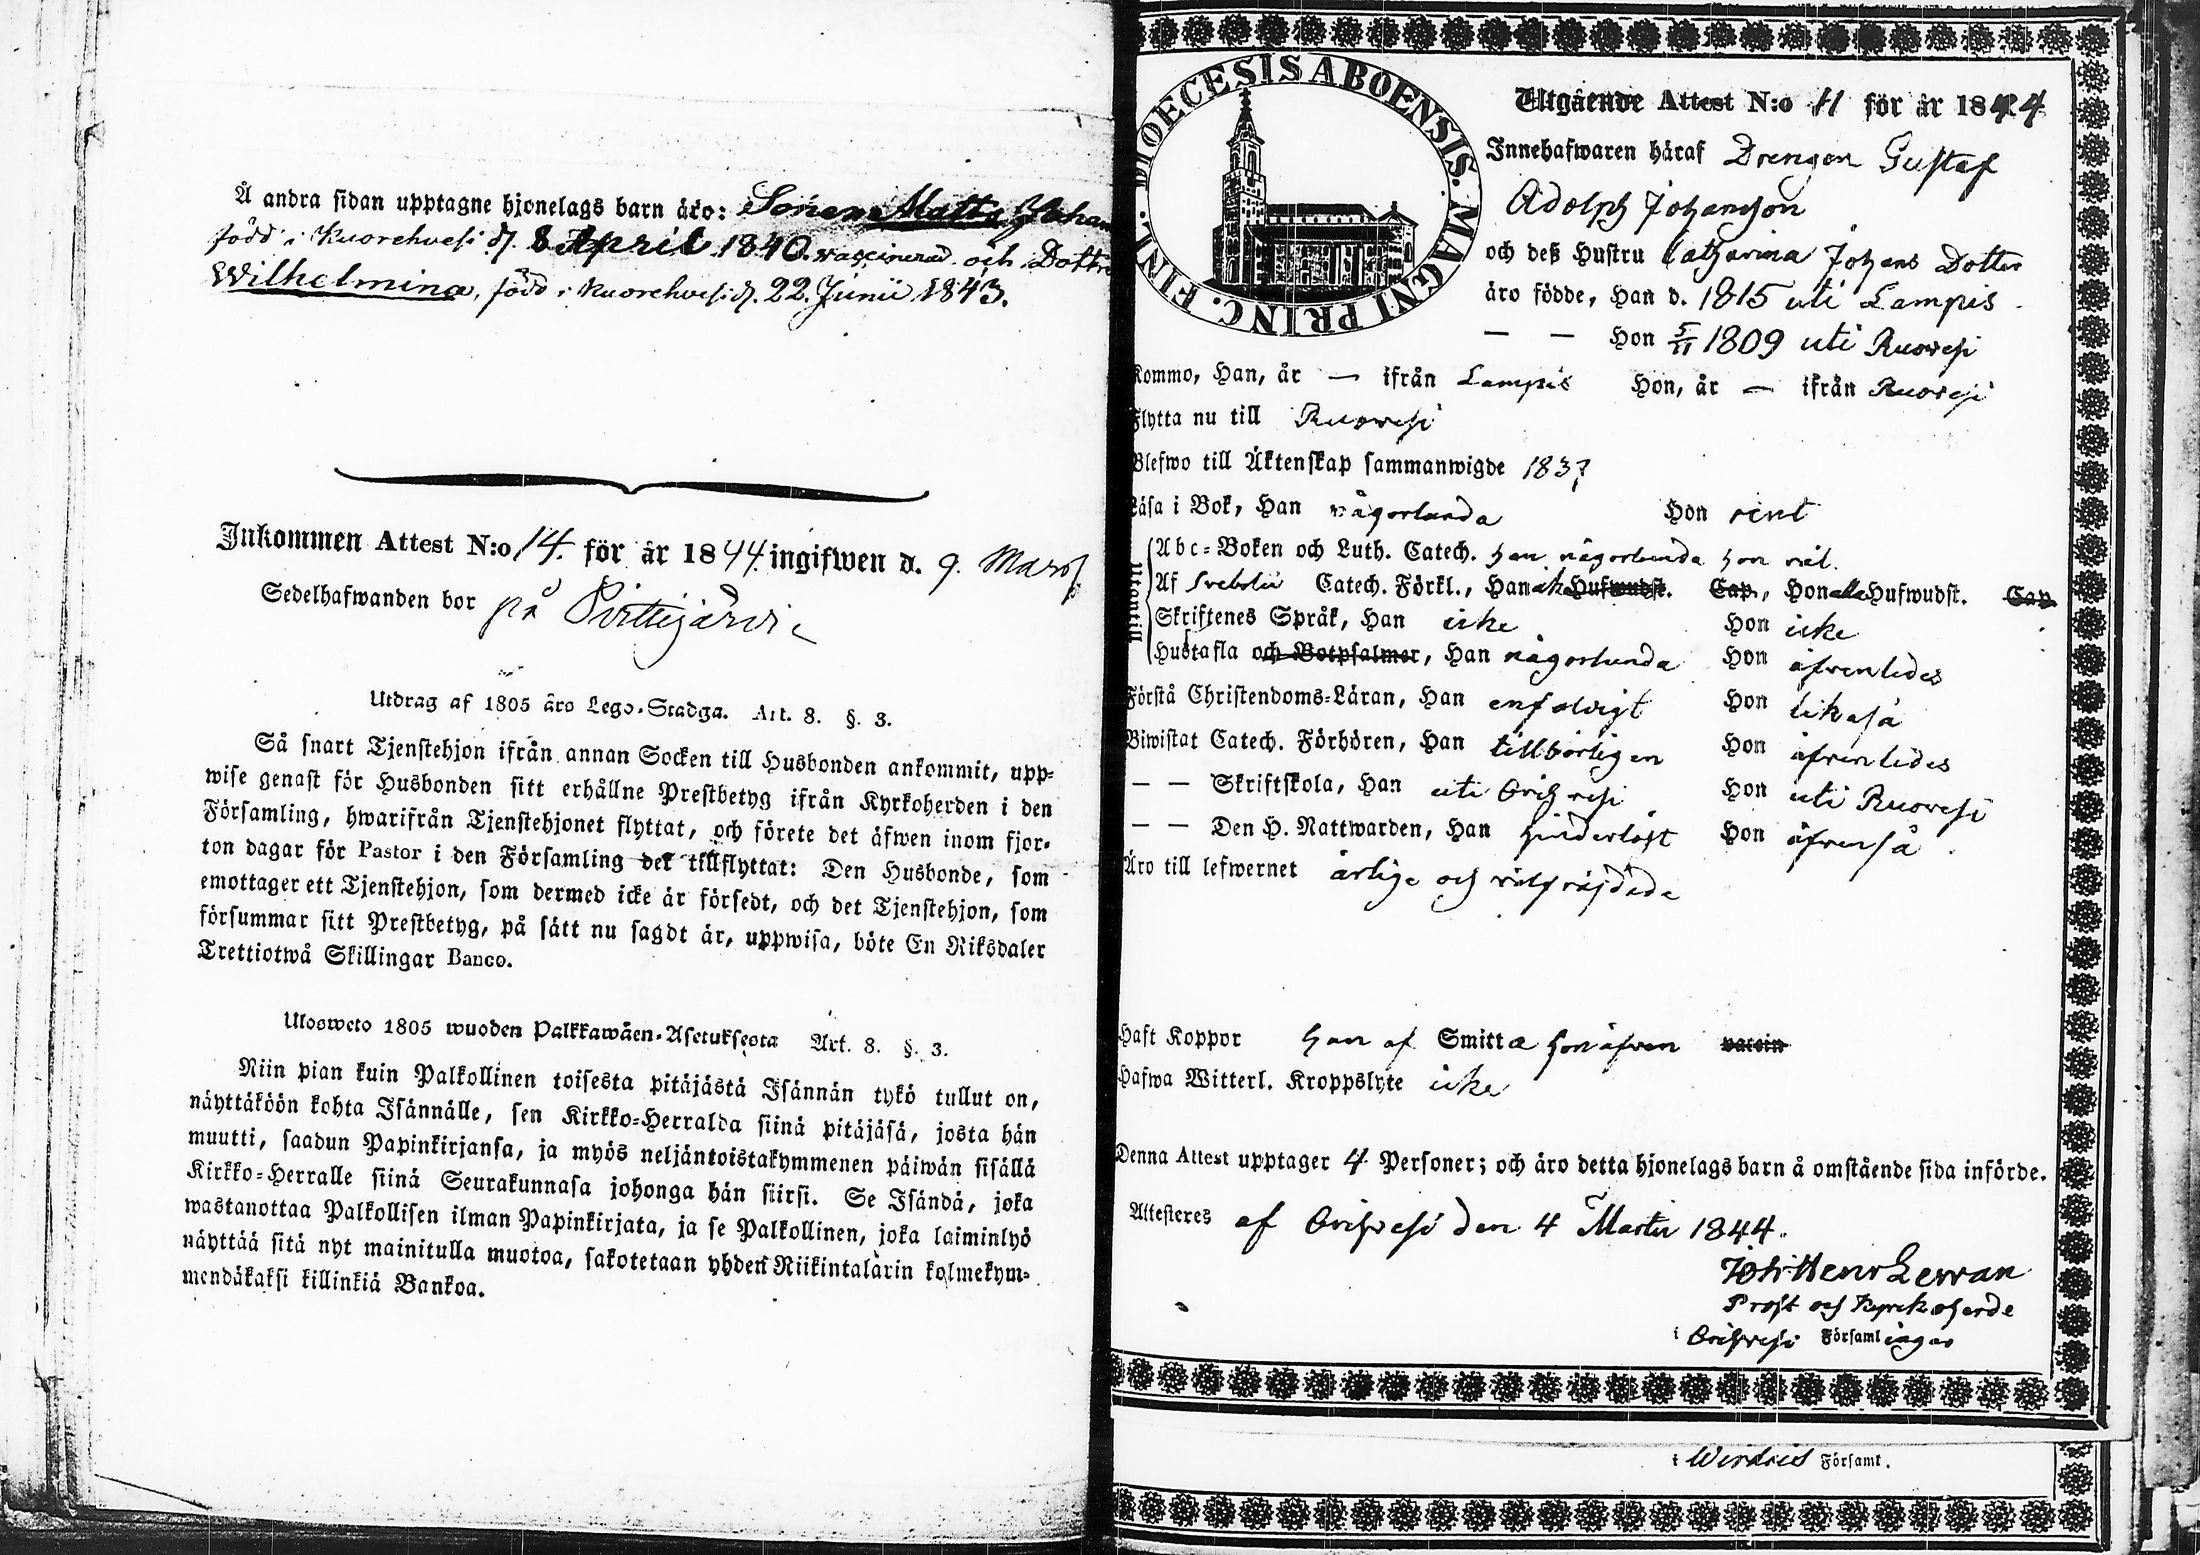 Å andra sidan upptagne hjonelags barn äro: Sonen Matts Johan
född i Kuorehvesi d. 8 April 1840. vaccinerad och Dottr
Wilhelmina, född i Kuorehvesi d. 22. Junii 1843.
Inkommen Attest N:o 14. för år 1844 ingifwen d. 9. Mars
Sedelhafwanden bor på Pirttijärvi
Utdrag af 1805 års Lego-Stadga. Art. 8. §. 3.
Så snart Tjenstehjon ifrån annan Socken till Husbonden ankommit, upp-
wise genast för Husbonden sitt erhållne Prestbetyg ifrån Kyrkoherden i den
Församling, hwarifrån Tjenstehjonet flyttat, och förete det äfwen inom fjor-
ton dagar för Pastor i den Församling det tillflyttat: Den Husbonde, som
emottager ett Tjenstehjon, som dermed icke är försedt, och det Tjenstehjon, som
försummar sitt Prestbetyg, på sätt nu sagdt är, uppwisa, böte En Riksdaler
Trettiotwå Skillingar Banco.
Ulosweto 1805 wuoden Palkkawäen-Asetuksesta Art. 8. §. 3.
Niin pian kuin Palkollinen toisesta pitäjästä Isännän tykö tullut on,
näyttäköön kohta Isännälle, sen Kirkko-Herralda siinä pitäjäsä, josta hän
muutti, saadun Papinkirjansa, ja myös neljäntoistakymmenen päiwän sisällä
Kirkko-Herralle siinä Seurakunnasa johonga hän siirsi. Se Isändä, joka
wastanottaa Palkollisen ilman Papinkirjata, ja se Palkollinen, joka laiminlyö
näyttää sitä nyt mainitulla muotoa, sakotetaan yhden Riikintalärin kolmekym-
mendäkaksi killinkiä Bankoa.
DIOECESIS ABOENSIS. MAGNI PRINC. FINL.
Utgående Attest N:o 11 för år 1844
Innehafwaren häraf Drengen Gustaf
Adolph Johansson
och deß Hustru Catharina Johans Dotter
äro födde, Han d. 1815 uti Lampis
— — Hon 5/11 1809 uti Ruovesi
Kommo, Han, år — ifrån Lampis Hon, år — ifrån Ruovesi
Flytta nu till Ruovesi
Blefwo till Äktenskap sammanwigde 1837
Läsa i Bok, Han någorlunda Hon rent
Utontill
Abc-Boken och Luth. Catech. han någorlunda hon väl.
Af Svebelii Catech. Förkl., Han icke Hufwudst. Cap., Hon alla Hufwudst. Cap
Skriftenes Språk, Han icke Hon icke
Hustafla och Botpsalmer, Han någorlunda Hon äfvenledes
Förstå Christendoms-Läran, Han enfaldigt Hon likaså
Biwistat Catech. Förhören, Han tillbörligen Hon äfvenledes
— — Skriftskola, Han uti Orihvesi Hon uti Ruovesi
— — Den H. Nattwarden, Han hinderlöst Hon äfvenså
Äro till lefwernet ärlige och välfräjdade
Haft Koppor han af Smitta hon äfven vaccin
Hafwa Witterl. Kroppslyte icke
Denna Attest upptager 4 Personer; och äro detta hjonelags barn å omstående sida införde.
Attesteres af Orihvesi den 4 Martii 1844.
Joh. Henr
Prost och Kyrckoherde
i Orihvesi Församlingar
i Församl.